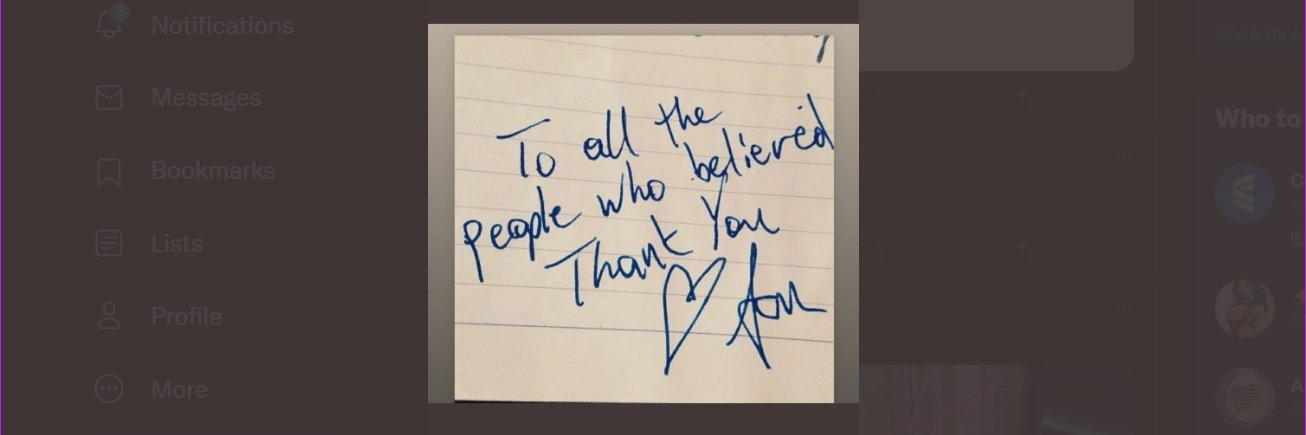 Notifications
2
Messages
Bookmarks
Lists
Profile
More
To all the
people who believed
Thank You
Show more
Who to
2
3